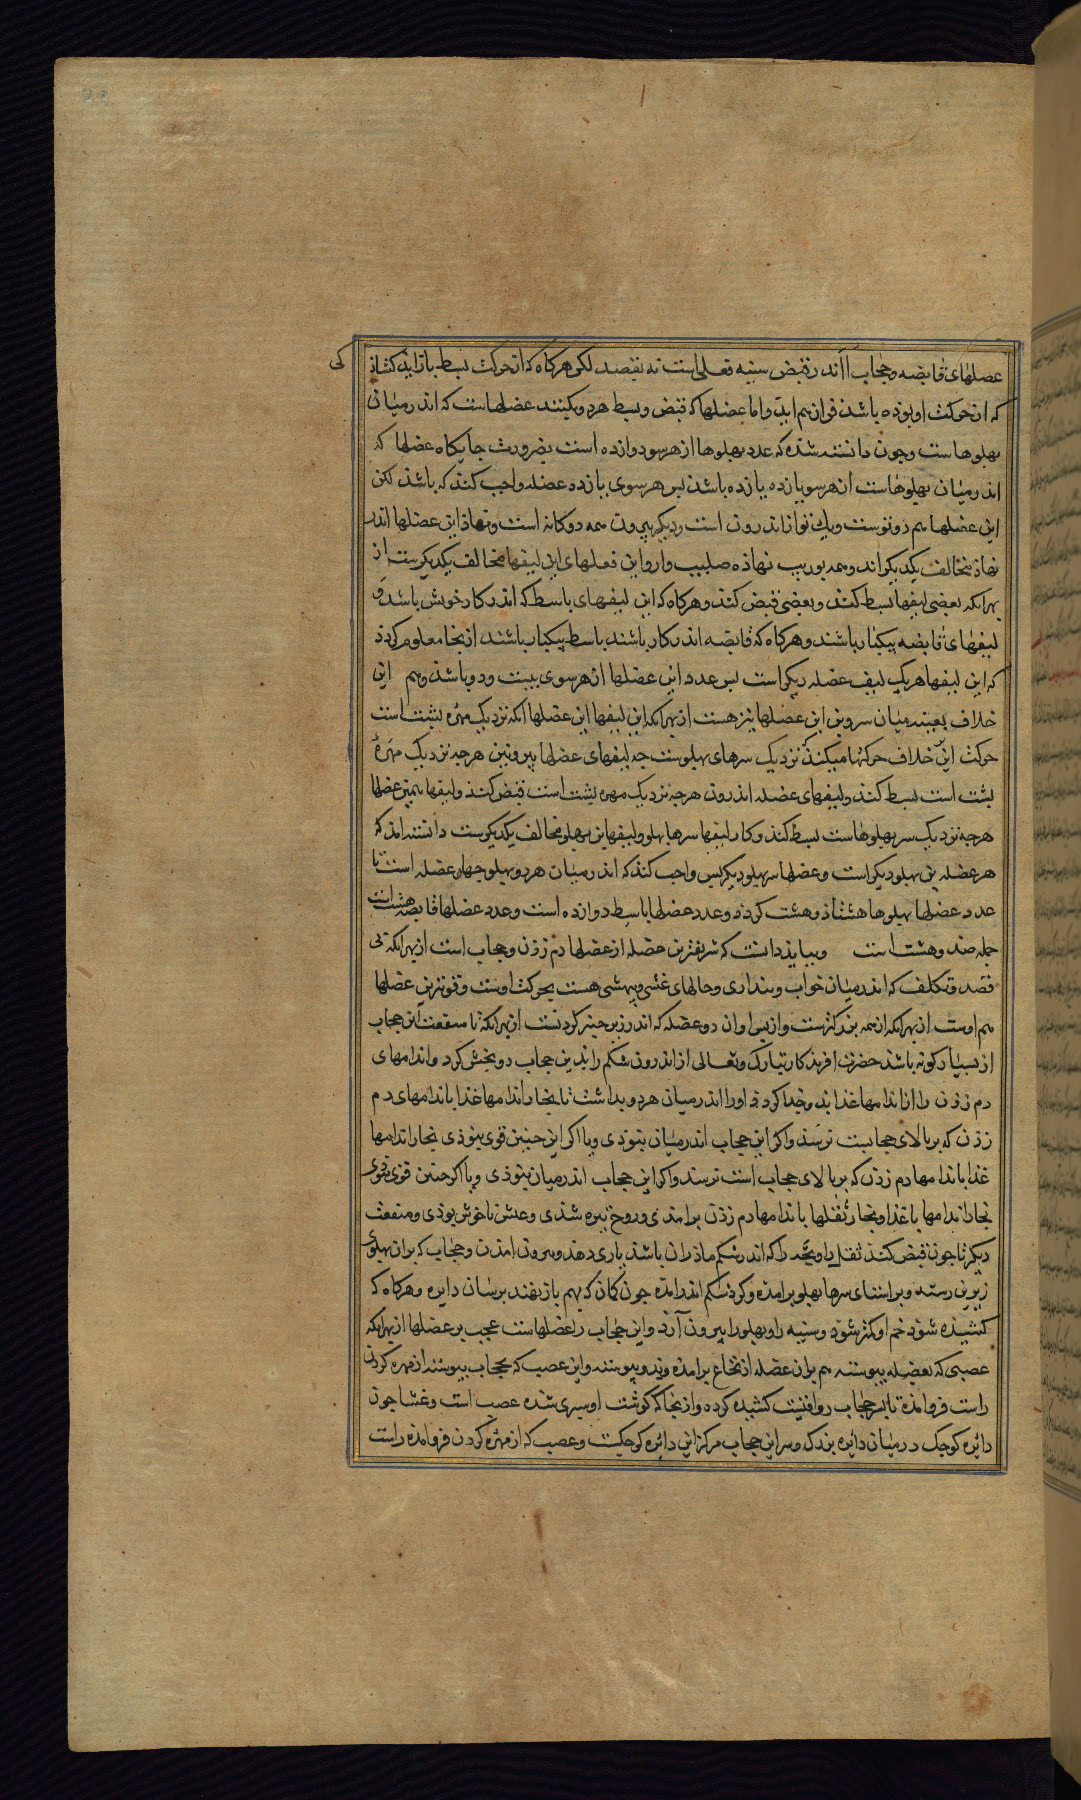 عضلهای قابضه و حجاب را اندر قبض سینه فعلی است نه بقصد لکن هرکاه که از حرکت بسط باز ایذ کشاذ کی
که از حرکت او بوذه باشذ فراهم ایذ و اما عضلها که قبض و بسط هر دو بکنند عضلهاست که اندر میان
بهلوهاست و جون دانسته شذه که عدد بهلوها از هر سو دوازده است بضرورت جایکاه عضلها که
اندر میان بهلوهاست از هر سو یازده یازده باشذ بس هر سوی یازده عضله واجب کند که باشذ لکن
این عضلها هم دو توست و یک تو از اندرون است و دیکر بیرون همه دوکانه است و نهاذ این عضلها اندر
نهاذ مخالف یکدیکراند و همه بوریب نهاذه صلیب وار و این فعلهای این لیفها مخالف یکدیکرست از
بهرانکه بعضی لیفها بسط کنند و بعضی قبض کنند و هرکاه که این لیفهای باسط که اندر کار خویش باشد و
لیفهای قابضه بیکار باشند و هرکاه که قابضه اندر کار باشند باسط بیکار باشند ازینجا معلوم کردد
که این لیفها هر یک لیف عضله دیکر است بس عدد این عضلها از هر سوی بیست و دو باشذ و هم این
خلاف بعینه میان سر و بن این عضلها نیز هست از بهرانکه این لیفها این عضلها انکه نزدیک مهره بشت است
حرکت این خلاف حرکتها میکند که نزدیک سرهای بهلوست جه لیفهای عضلها بیرونین هرجه نزدیک مهره
بشت است بسط کنند و لیفهای عضله اندرون هرجه نزدیک مهره بشت است قبض کنند و لیفها همین عضلها
هرجه نزدیک سر بهلوهاست بسط کنند و کار لیفها سرها بهلو و لیفها بن بهلو مخالف یکدیکرست دانسته امذ که
هر عضله بن بهلو دیکر است و عضلها سر بهلو دیکر بس واجب کند که اندر میان هر دو بهلو جهار عضله است تا
عدد عضلها بهلوها هشتاذ و هشت کردد و عدد عضلها باسط دوازده است و عدد عضلها قابضه هشت است
جمله صد و هشت است و ببایذ دانست که شریفترین عضله از عضلها دم زذن و حجاب است از بهرانکه بی
قصد و تکلف که اندر میان خواب و بنداری و حالهای غشی و بیهشی هست بحرکت اوست و قوی ترین عضلها
هم اوست از بهرانکه از همه بزرکترست و از بس او ان دو عضله که اندر زیر جنبر کردنست از بهرانکه تا منفعت این حجاب
از بسیار کونه باشذ حضرت افریذکار تبارک و تعالی از اندرون شکم را بدین حجاب دو بخش کرد و اندامهای
دم زذن را از اندامها غذا بذو جذا کرد و او را اندر میان هر دو بداشت تا بخار اندامها غذا باندامهای دم
زذن که بر بالای حجابست نرسذ و اکر این حجاب اندر میان نبوذی و یا اکر این جنین قوی نبوذی بخار اندامها
غذا باندامها دم زذن که بر بالای حجاب است نرسذ و اکر این حجاب اندر میان نبوذی و یا اکر جنین قوی نبوذی
بخار اندامها با غذا و بخار ثفلها باندامها دم زذن برامذی و روح تیره شذی و عیش ناخوش بوذی و منفعت
دیکر تا جون قبض کند ثفل را و بجه را که اندر شکم ماذران باشذ یاری دهذ و بیرون امذن و حجاب که بران بهلوی
زبرین رسته و بر استای سرها بهلو برامذه و کرد شکم اندر امذه جون کمان که بهم باز نهند برسان دایره و هرکاه که
کشیذه شوذ خم او کمتر شوذ و سینه را و بهلو را بیرون آرذ و این حجاب را عضلهاست عجب بر عضلها از بهرانکه
عصبی که بعضله بیوسته هم بران عضله از نخاع برامذه و بذو بیوسته و این عصب که بحجاب بیوسته از مهره کردن
راست فروامذه تا بسر حجاب رو افتیت کشیده کرده و از بنجا که کوشت او سبری شذه عصب است و غشا جون
دائره کوجک در میان دائره بزرک و سر این حجاب مرکز این دائره کوجکست و عصب که از مهره کردن فروامذه راست